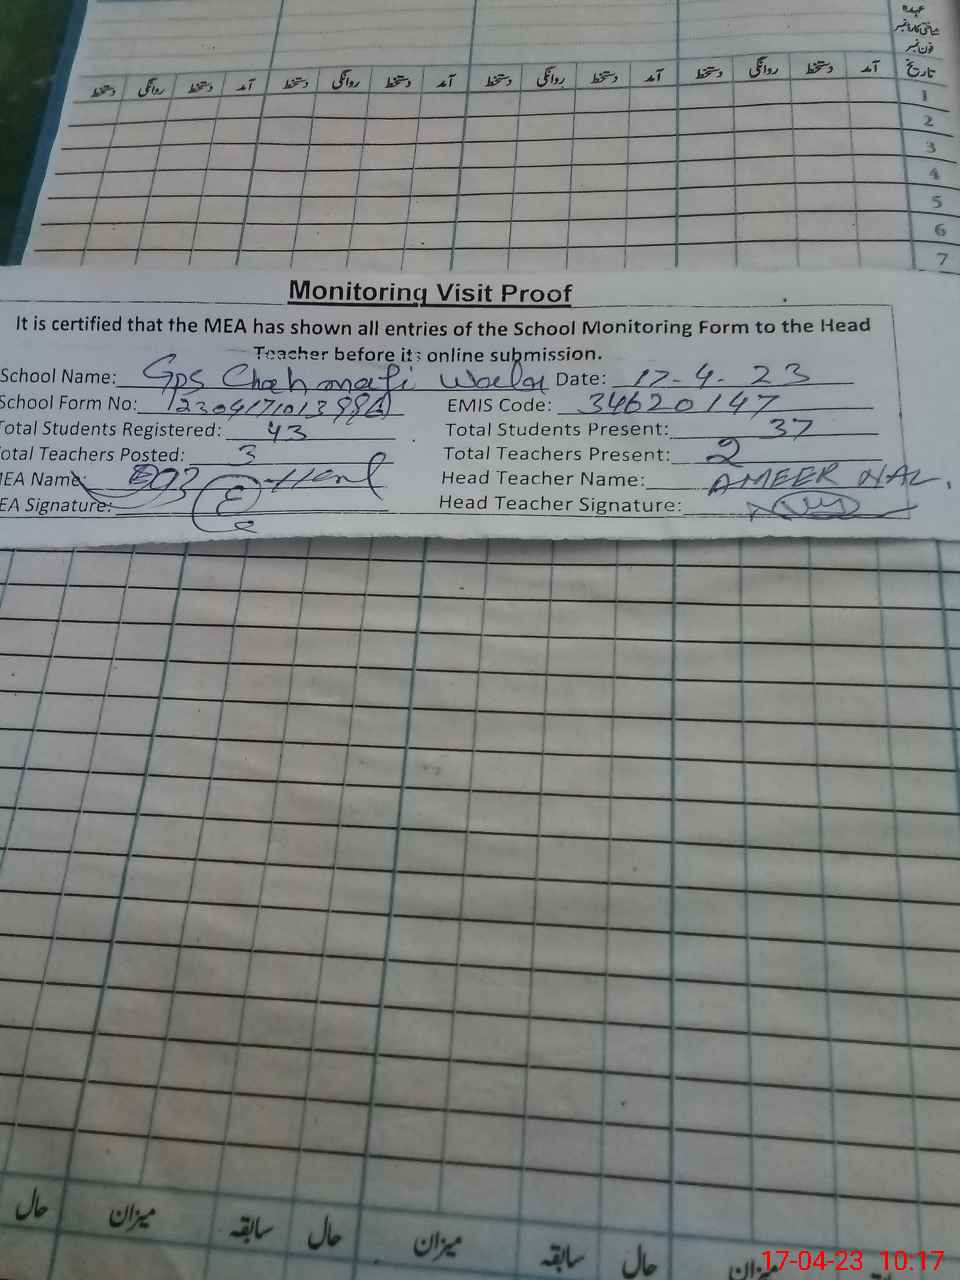 عہدہ
شناختی کارڈ نمبر
فون نمبر
تاریخ آمد دستخط روانگی دستخط آمد دستخط روانگی دستخط آمد دستخط روانگی دستخط آمد دستخط روانگی دستخط
1
2
3
4
5
6
7
Monitoring Visit Proof
It is certified that the MEA has shown all entries of the School Monitoring Form to the Head
Teacher before its online submission.
School Name: Gps Chah Date: 17-4-23
School Form No: EMIS Code: 34620147
Total Students Registered: 43 Total Students Present: 37
Total Teachers Posted: 3 Total Teachers Present: 2
MEA Name: Head Teacher Name: AMEER
EA Signature: Head Teacher Signature:
میزان حال سابقہ میزان حال سابقہ میزان حال
17-04-23 10:17